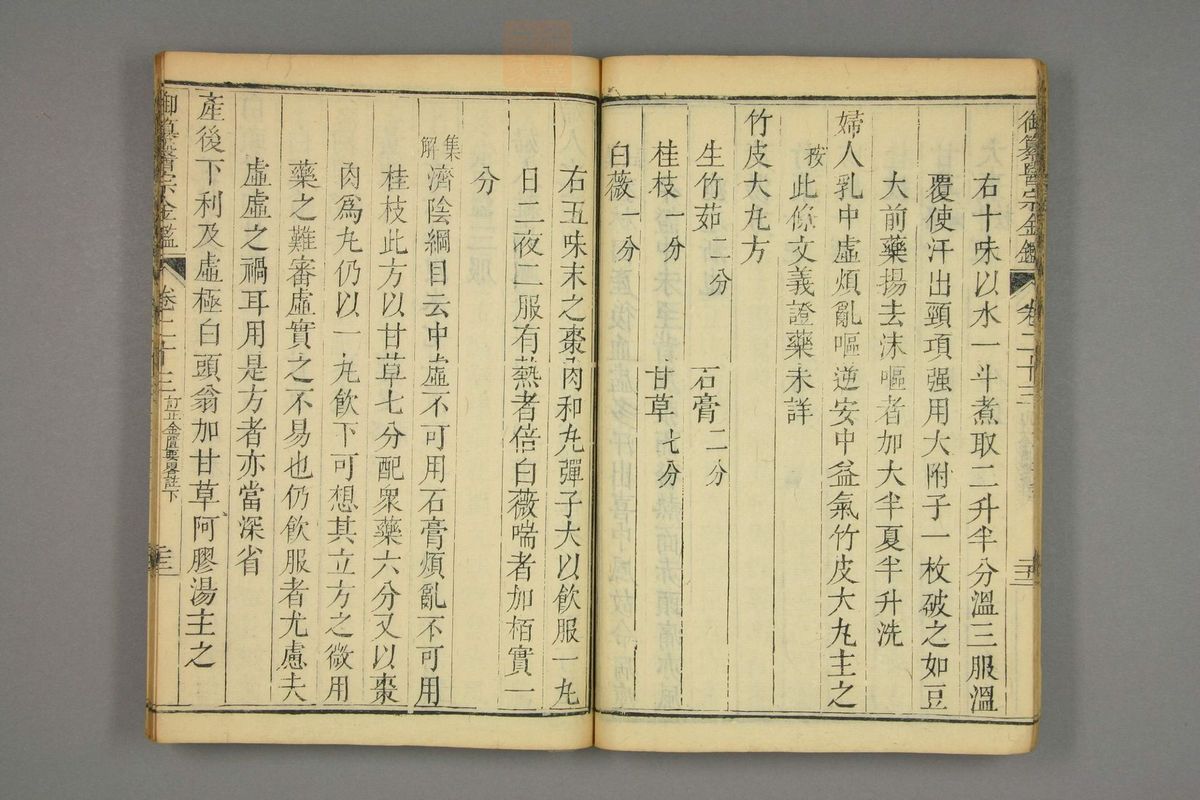 御纂醫宗金鑑 卷二十三
右十味以水一斗煮取二升半分溫三服溫
覆使汗出頸項强用大附子一枚破之如豆
大前藥揚去沫嘔者加大半夏半升洗
婦人乳中虛煩亂嘔逆安中益氣竹皮大丸主之
按此條文義證藥未詳
竹皮大丸方
生竹茹二分 石膏二分
桂枝一分 甘草七分
白薇一分
右五味末之棗肉和丸彈子大以飮服一丸
日二夜二服有熱者倍白薇喘者加栢實一
分
集解濟陰綱目云中虛不可用石膏煩亂不可用
桂枝此方以甘草七分配衆藥六分又以棗
肉爲丸仍以一丸飮下可想其立方之微用
藥之難審虛實之不易也仍飮服者尤慮夫
虛虛之禍耳用是方者亦當深省
產後下利及虛極白頭翁加甘草阿膠湯主之
御纂醫宗金鑑 卷二十三 訂正金匱要畧註下